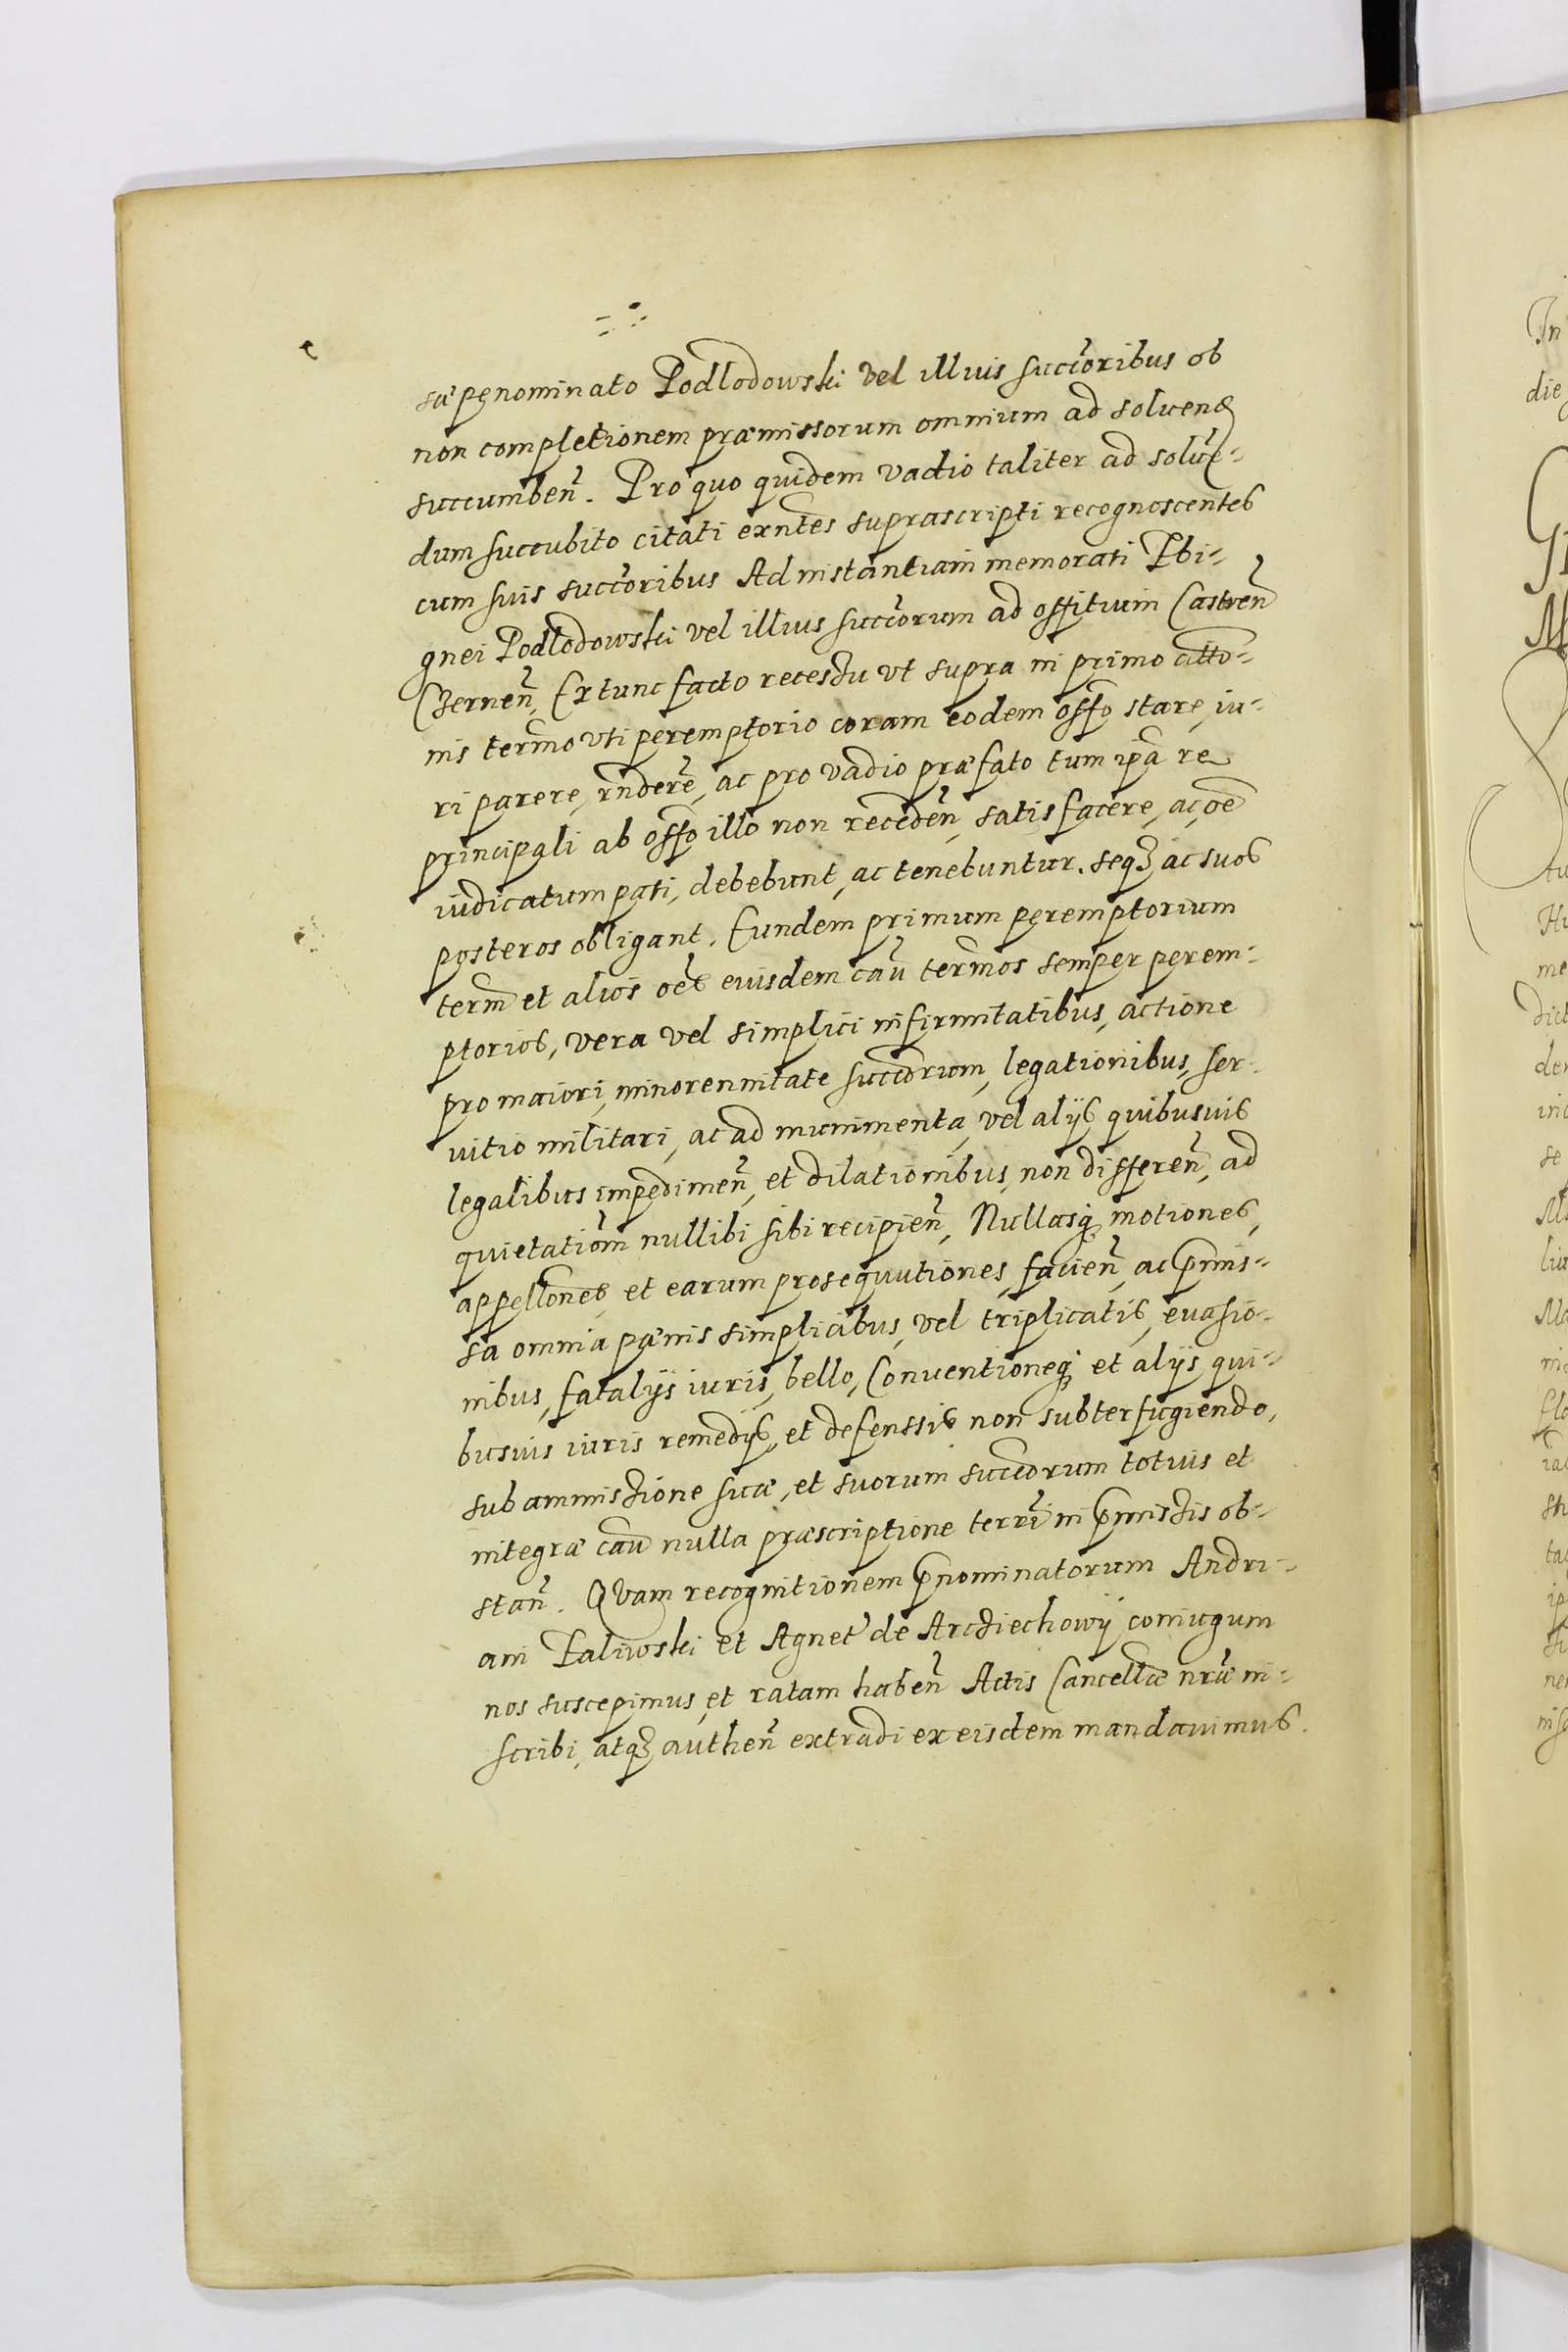 sæpenominato Podlodowski vel illius succōribus ob
non completionem præmissorum omnium ad soluend
succumben̄. Pro quo quidem vadio taliter ad soluē-
dum succubito citati exn̄tes suprascripti recognoscentes
cum suis succōribus Ad instantiam memorati Zbi-
gnei Podlodowski vel illius succōrum ad offitium Castren̄
Czernen̄, Ex tunc facto recessu vt supra in primo citto-
nis termō vti peremptorio coram eodem offo stare, iu-
ri parere, rn̄dere, ac pro vadio præfato tum ip̄a re
principali ab offo illo non receden̄, satisfacere, ac oē
iudicatum pati, debebunt, ac tenebuntur. seqꝫ ac suos
posteros obligant. Eundem primum peremptorium
term̄ et alios oēs eiusdem cau͂ term̄os semper perem-
ptorios, vera vel simplici infirmitatibus, actione
pro maiori, minorennitate succōrum, legationibus, ser-
uitio militari, ac ad munimenta, vel alijs quibusuis
legalibus impedimen̄, et dilationibus, non differen̄, ad
quietatiōm nullibi sibi recipien̄, Nullasqꝫ motiones,
appellōnes, et earum prosequutiones, facien̄, ac p̄mis-
sa omnia pænis simplicibus, vel triplicatis, euasio-
nibus, fatalijs iuris, bello, Conuentioneqꝫ et alijs qui-
busuis iuris remedijs, et defenssis non subterfugiendo,
sub ammissione suæ, et suorum succōrum totius et
integræ cau͂ nulla præscriptione terrī in p̄missis ob-
stan̄. Quam recognitionem p̄nominatorum Andri-
ani Faliwski et Agnet' de Arcziechowij coniugum
nos suscepimus, et ratam haben̄ Actis Cancellæ nr̄æ in-
scribi, atqꝫ authen̄ extradi ex eisdem mandauimus.